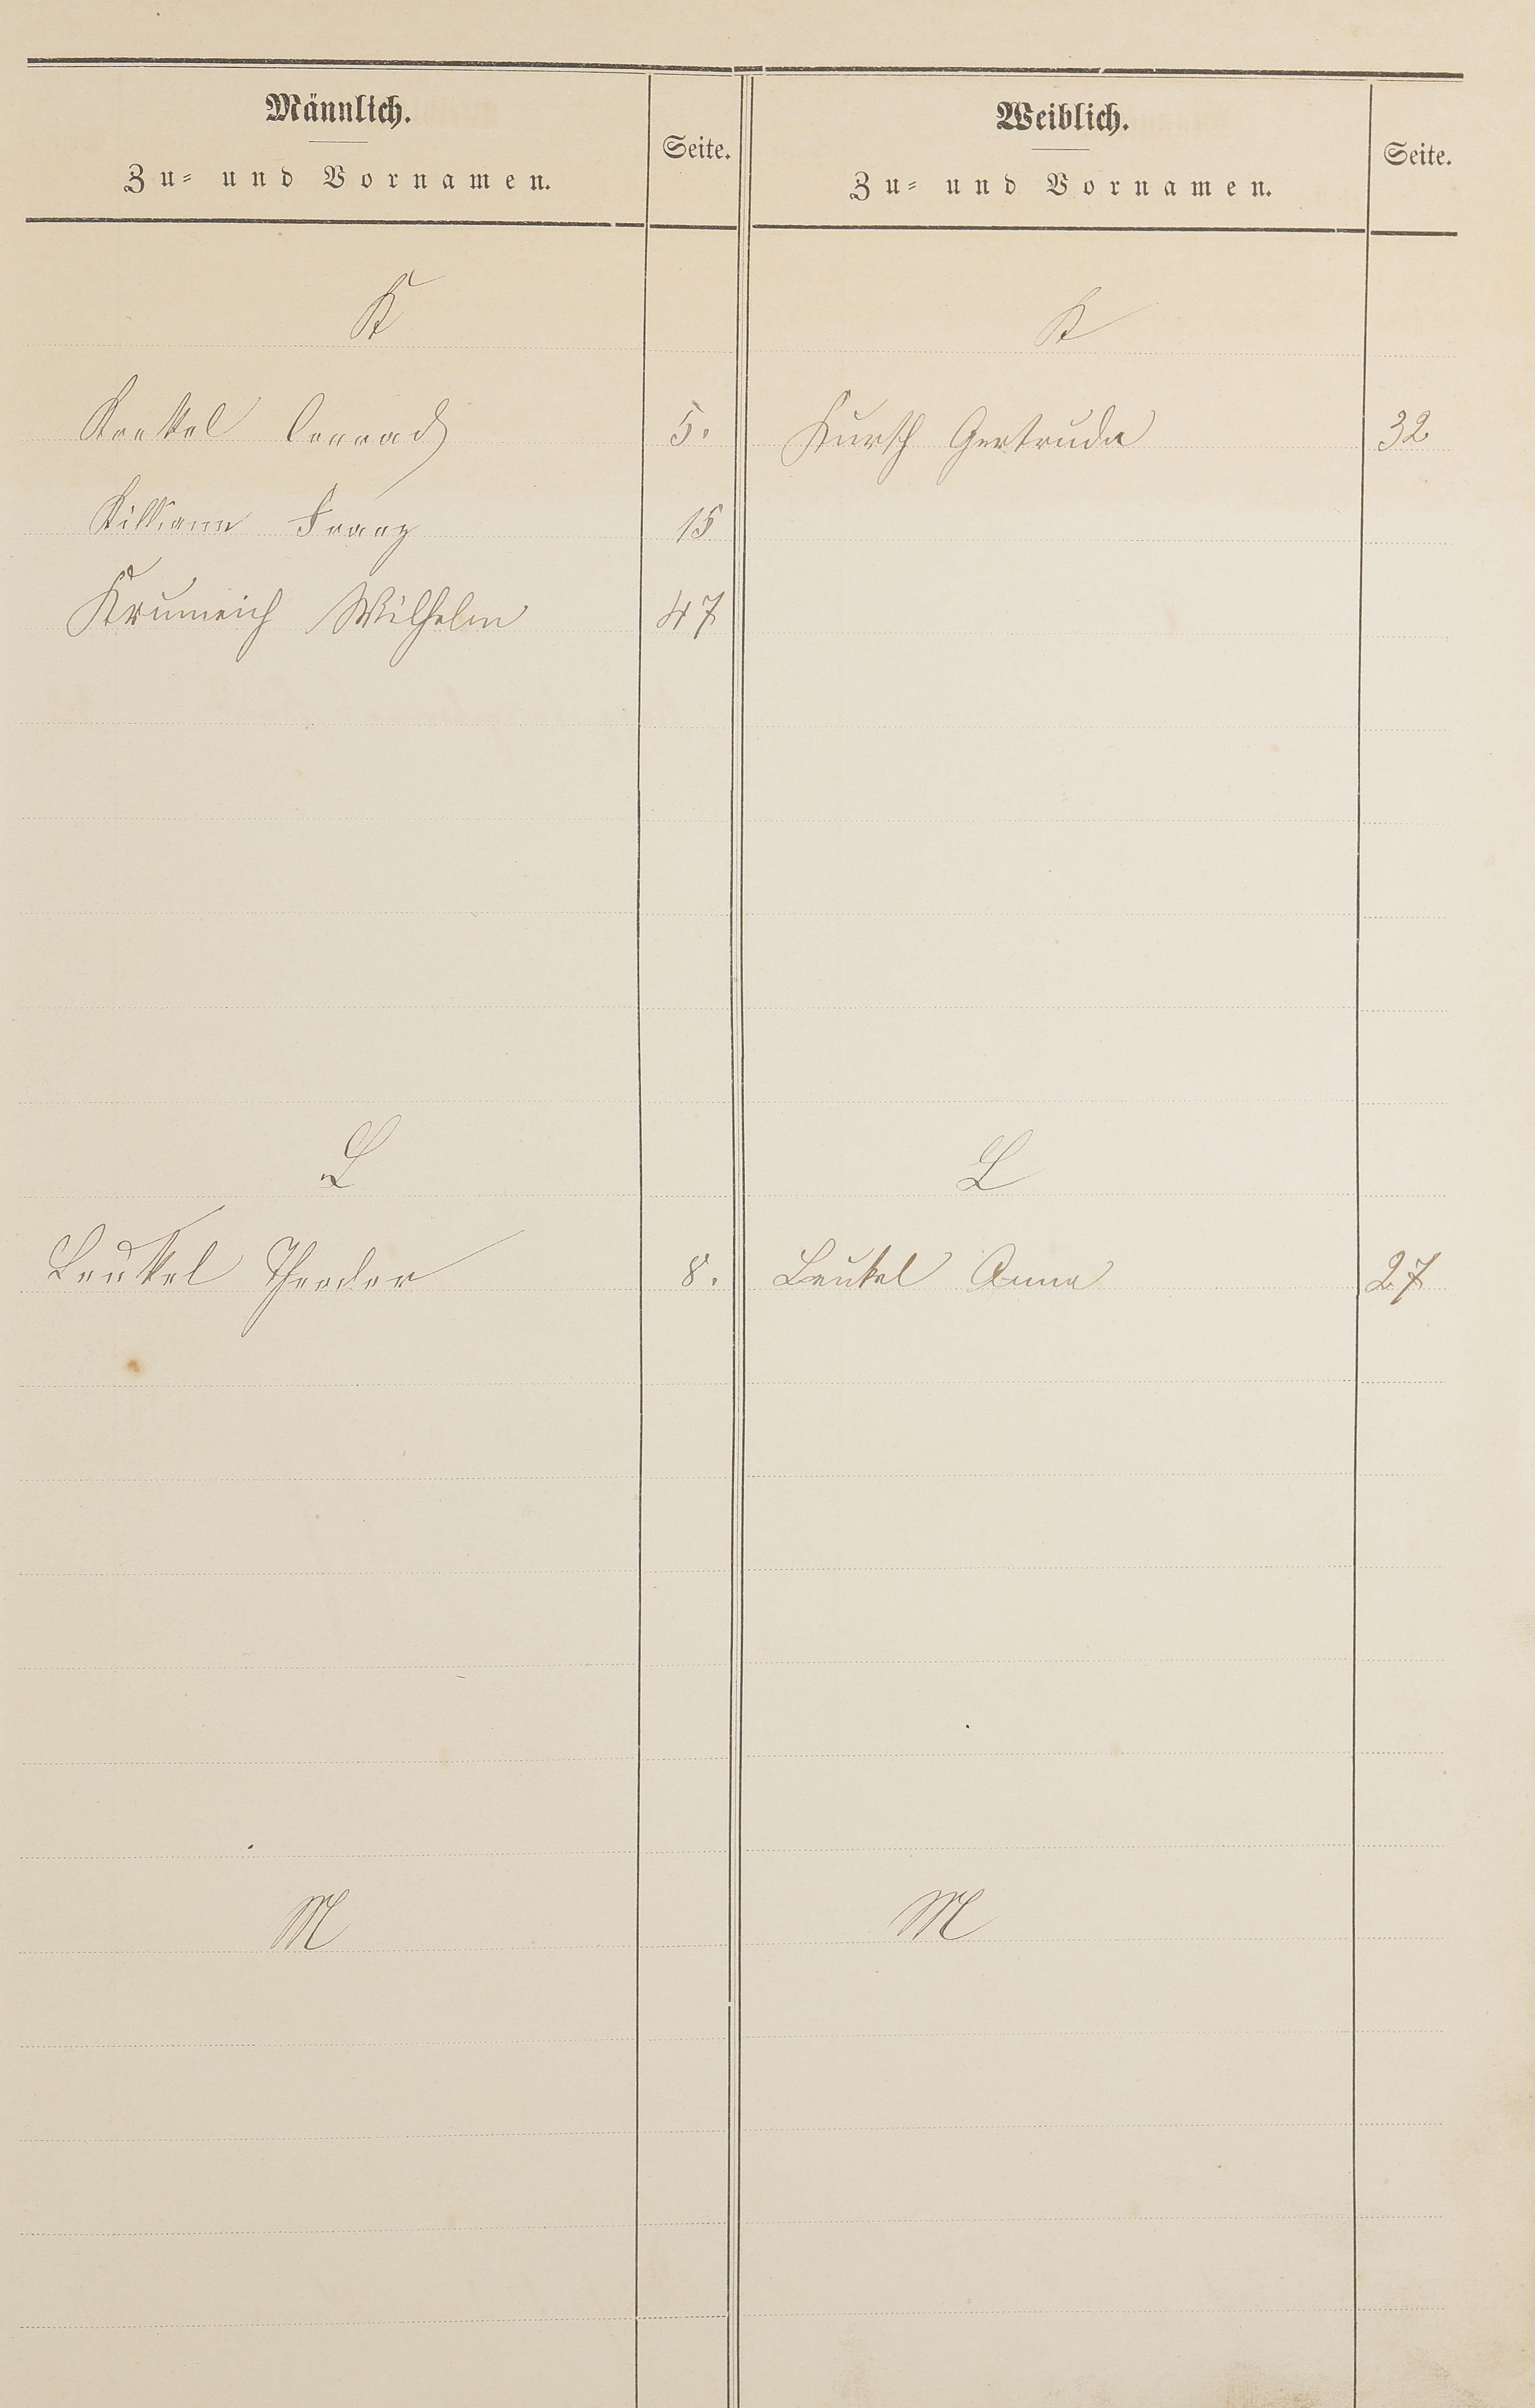 Männlich.
Zu- und Vornamen.
Seite.
Weiblich.
Zu- und Vornamen.
Seite.
K
K
Conrad 5.
Gertruda 32
Franz 15
Krumeich Wilhelm 47
L
L
Leukel Theodor 8.
Leukel Anna 27
M
M